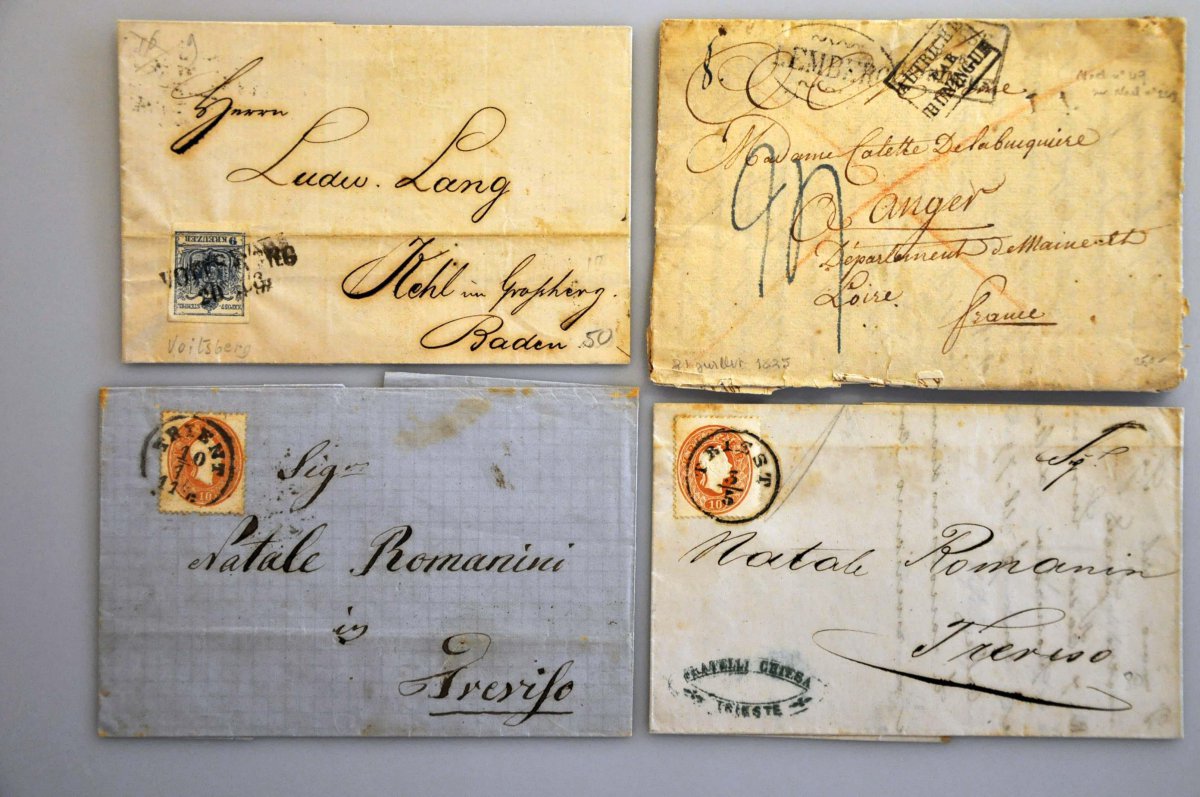 Herrn
Ludw. Lang
Kehl im Großherg.
Baden
50
9 KREUZER
VOITSBERG
Voitsberg
LEMBERG
AUTRICHE
PAR
HUNINGUE
Madame Colette Delabuquiere
a anger
Département de Maine et
Loire
france
21 juillet 1825
TRIENT
10
10
Sigr
Natale Romanini
in
Treviso
TRIEST
10
Sigr
Natale Romanin
Treviso
FRATELLI CHIESA
TRIESTE